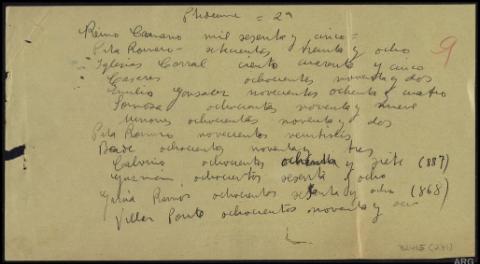 = 2ª
Reino Caamaño mil sesenta y cinco =
Pita Romero - setecientos treinta y ocho
9
Iglesias Corral ciento cuarenta y cinco
Casares ochocientos noventa y dos
Emilio Gonzalez novecientos ochenta y cuatro
Somoza ochocientos noventa y nueve
ochocientos noventa y dos
Pita Romero novecientos veintiseis
Beade ochocientos noventa y tres
Calviño ochocientos ochenta y siete (887)
Guzmán, ochocientos sesenta y ocho
García Ramos ochocientos sesenta y ocho (868)
Villar Ponte ochocientos noventa y ocho
ARG